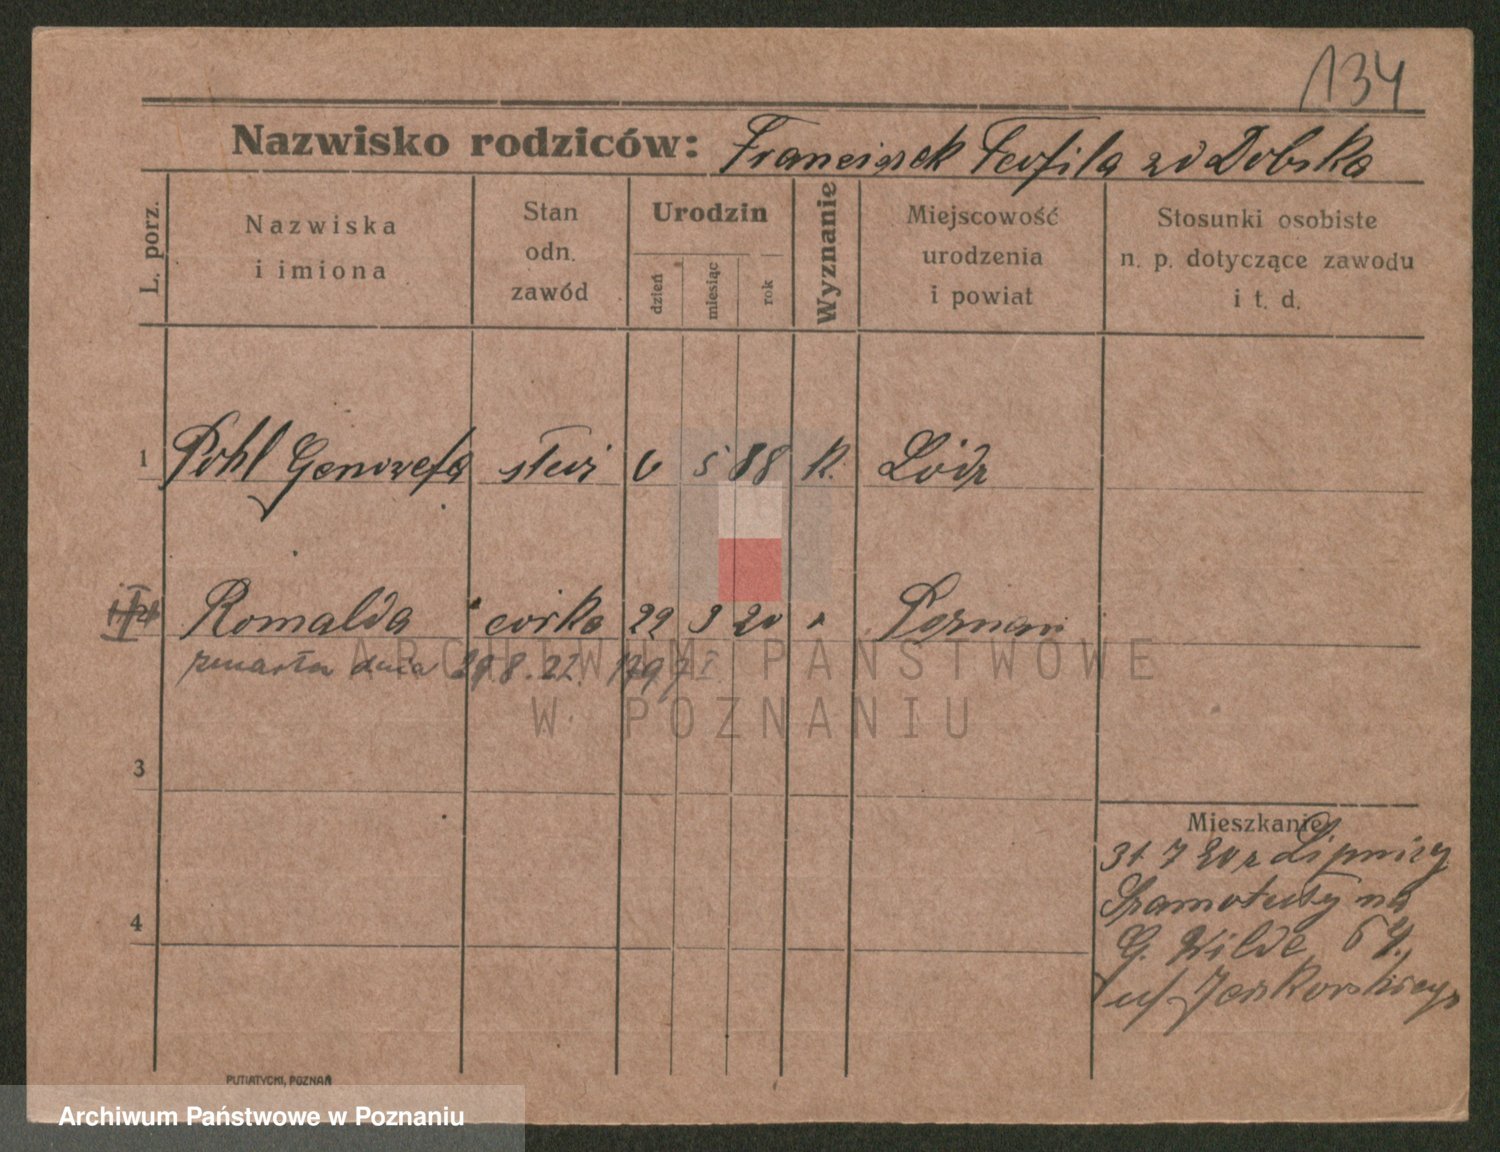 134
Nazwisko rodziców: Franciszek Teofila zd Dobska
L. porz.
Nazwiska
i imiona
Stan
odn.
zawód
Urodzin
dzień
miesiąc
rok
Wyznanie
Miejscowość
urodzenia
i powiat
Stosunki osobiste
n. p. dotyczące zawodu
i t. d.
1 Pohl Genowefa 6 5 88 K. Łódz
Romalda corka 22 3 20 Poznan
zmarła dnia 29.8.22.
ARCHIWUM PAŃSTWOWE
W POZNANIU
3
Mieszkanie
31 7 20 z Lipnicy
Szamotuły na
4
G. Wilde 64.
u/
PUTIATYCKI, POZNAŃ
Archiwum Państwowe w Poznaniu